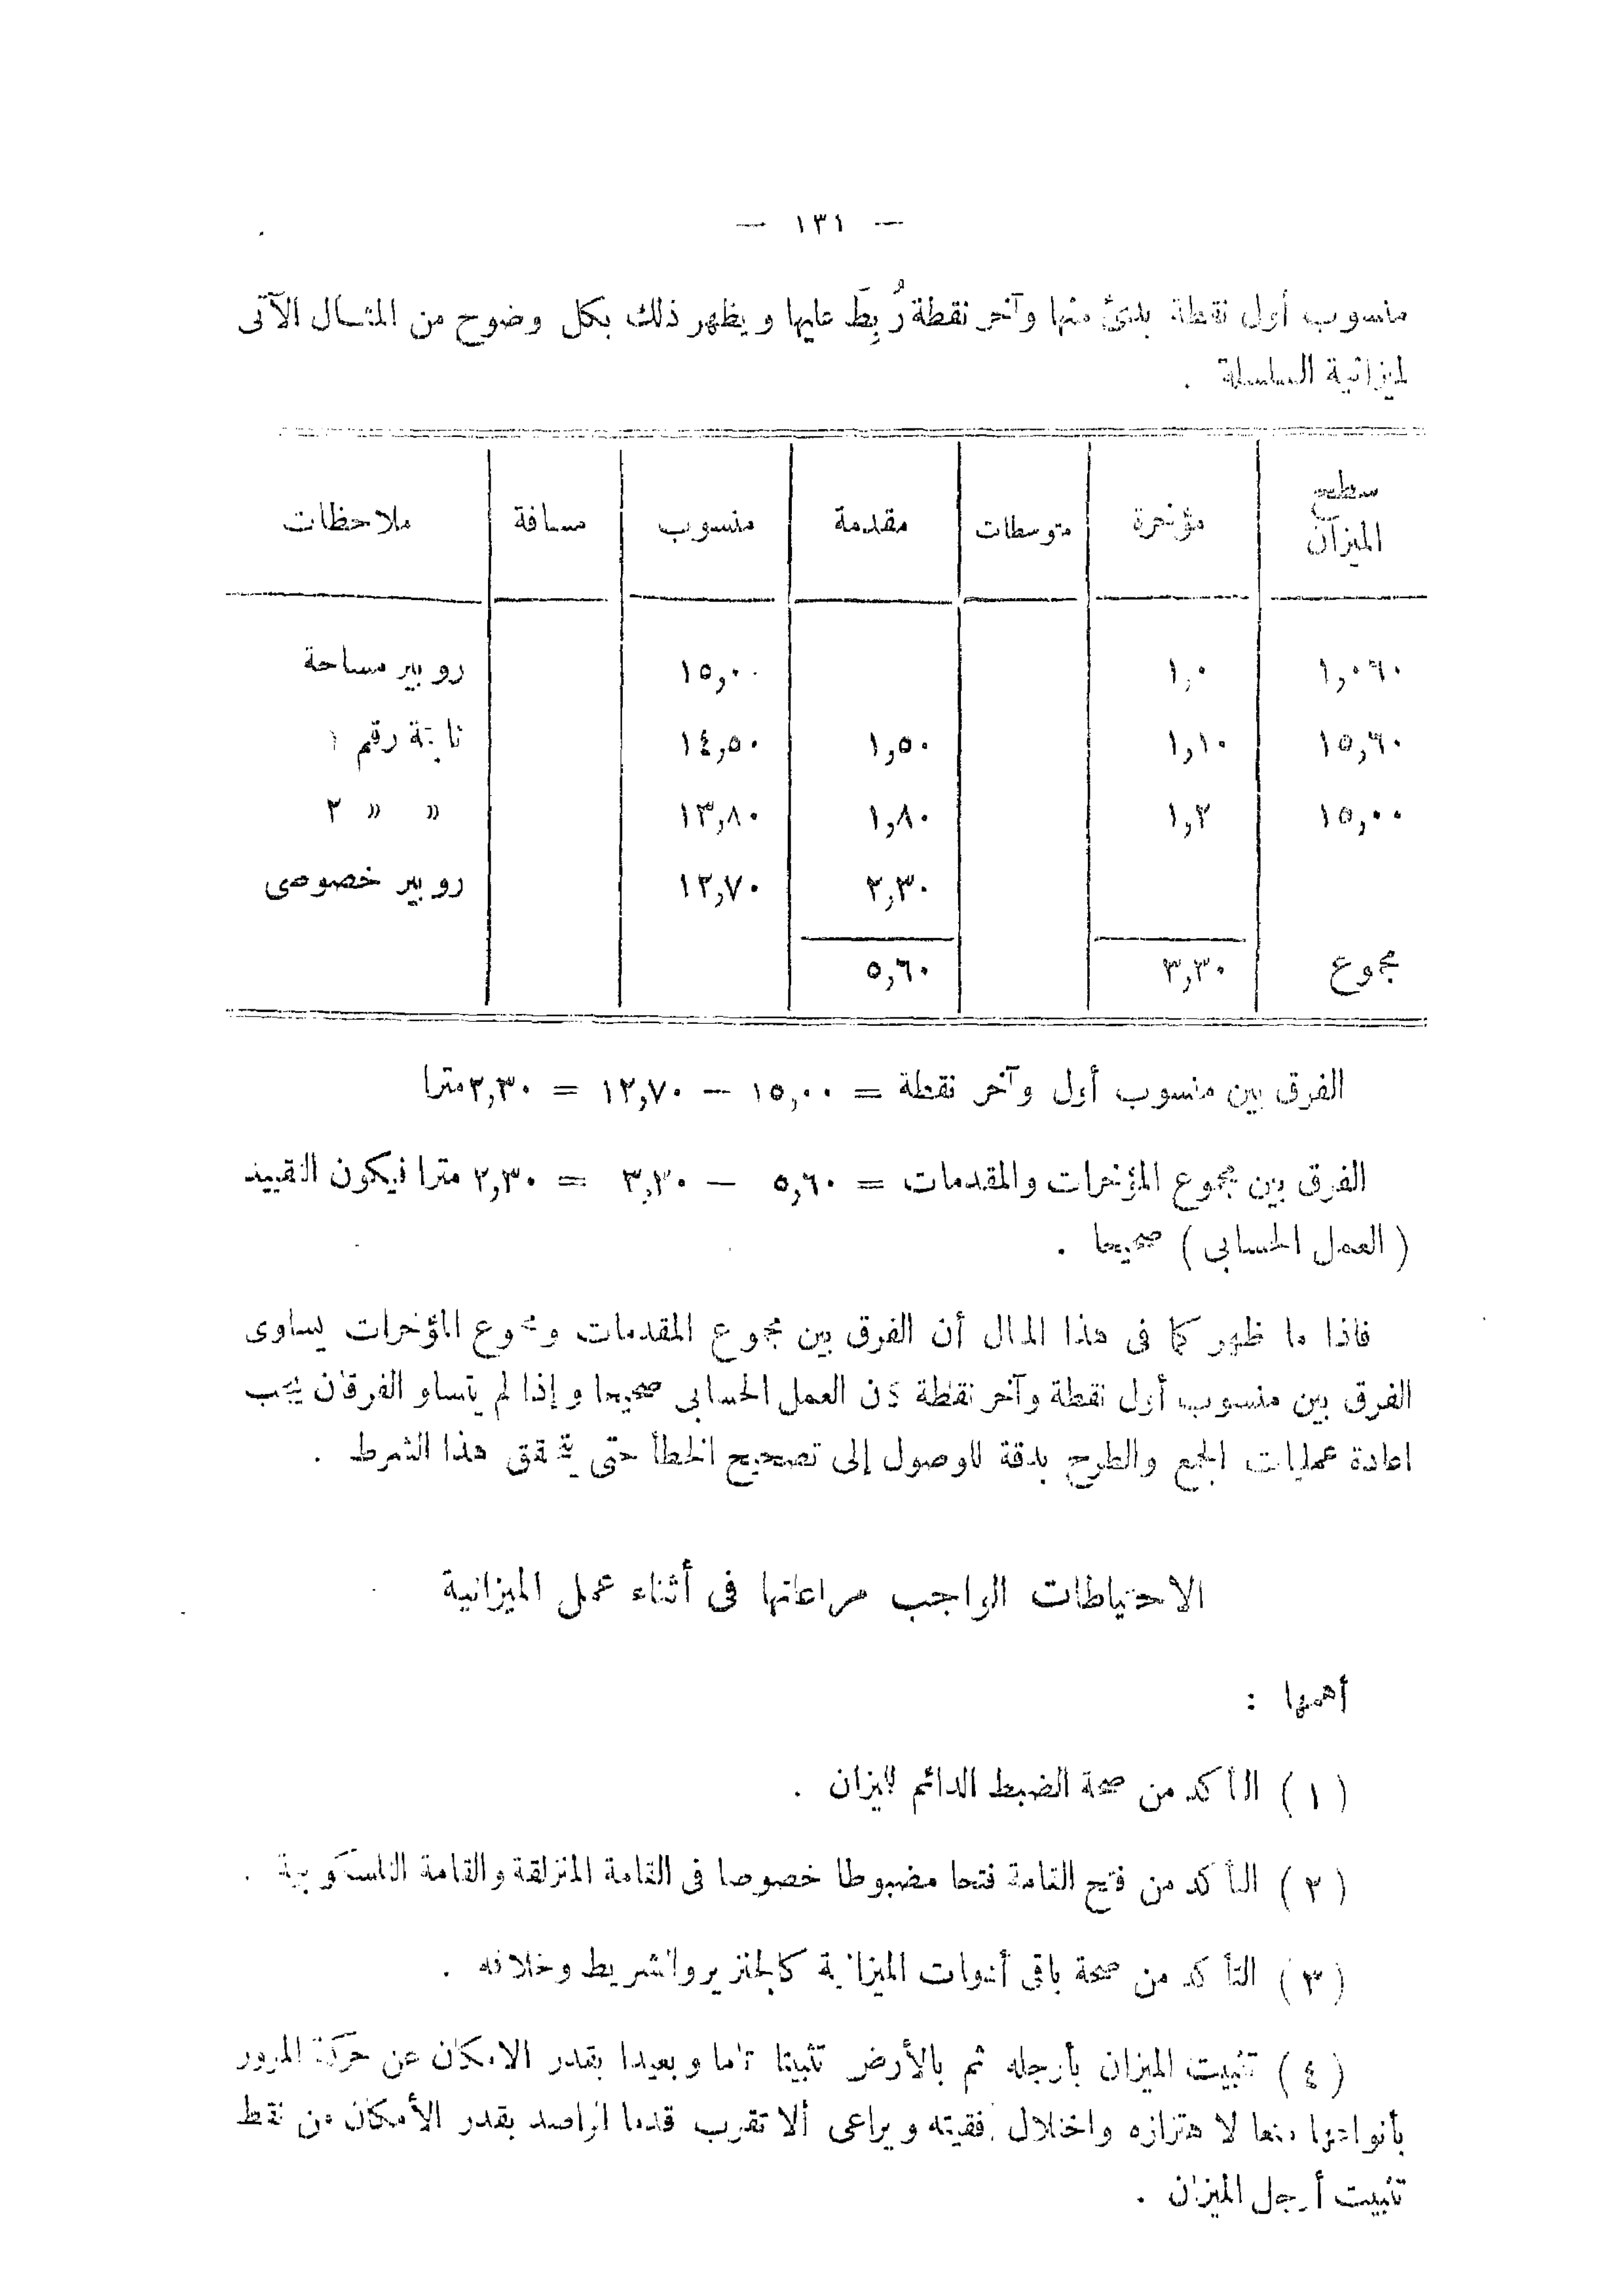 — ١٣١ —
منسوب أول نقطة بدئ منها وآخر نقطة رُبِطَ عليها ويظهر ذلك بكل وضوح من المثال الآتى
لميزانية السلسلة .
سطح الميزان مؤخرة متوسطات مقدمة منسوب مسافة ملاحظات
١,٠٦٠ ١,٠ ١٥,٠٠ روبير مساحة
١٥,٦٠ ١,١٠ ١,٥٠ ١٤,٥٠ ثابتة رقم ١
١٥,٠٠ ١,٢ ١,٨٠ ١٣,٨٠ » » ٢
٢,٣٠ ١٢,٧٠ روبير خصوصى
مجموع ٣,٣٠ ٥,٦٠
الفرق بين منسوب أول وآخر نقطة = ١٥,٠٠ — ١٢,٧٠ = ٢,٣٠ مترا
الفرق بين مجموع المؤخرات والمقدمات = ٥,٦٠ — ٣,٣٠ = ٢,٣٠ مترا فيكون التقييد
( العمل الحسابى ) صحيحا .
فاذا ما ظهر كما فى هذا المثال أن الفرق بين مجموع المقدمات ومجموع المؤخرات يساوى
الفرق بين منسوب أول نقطة وآخر نقطة كان العمل الحسابى صحيحا وإذا لم يتساو الفرقان يجب
اعادة عمليات الجمع والطرح بدقة للوصول إلى تصحيح الخطأ حتى يتحقق هذا الشرط .
الاحتياطات الواجب مراعاتها فى أثناء عمل الميزانية
أهمها :
( ١ ) التأكد من صحة الضبط الدائم للميزان .
( ٢ ) التأكد من فتح القامة فتحا مضبوطا خصوصا فى القامة المنزلقة والقامة التلسكوبية .
( ٣ ) التأكد من صحة باقى أدوات الميزانية كالجنزير والشريط وخلافه .
( ٤ ) تثبيت الميزان بأرجله ثم بالأرض تثبيتا تاما وبعيدا بقدر الامكان عن حركة المرور
بأنواعها منعا لاهتزازه واختلال أفقيته ويراعى ألا تقرب قدما الراصد بقدر الأمكان من نقط
تثبيت أرجل الميزان .